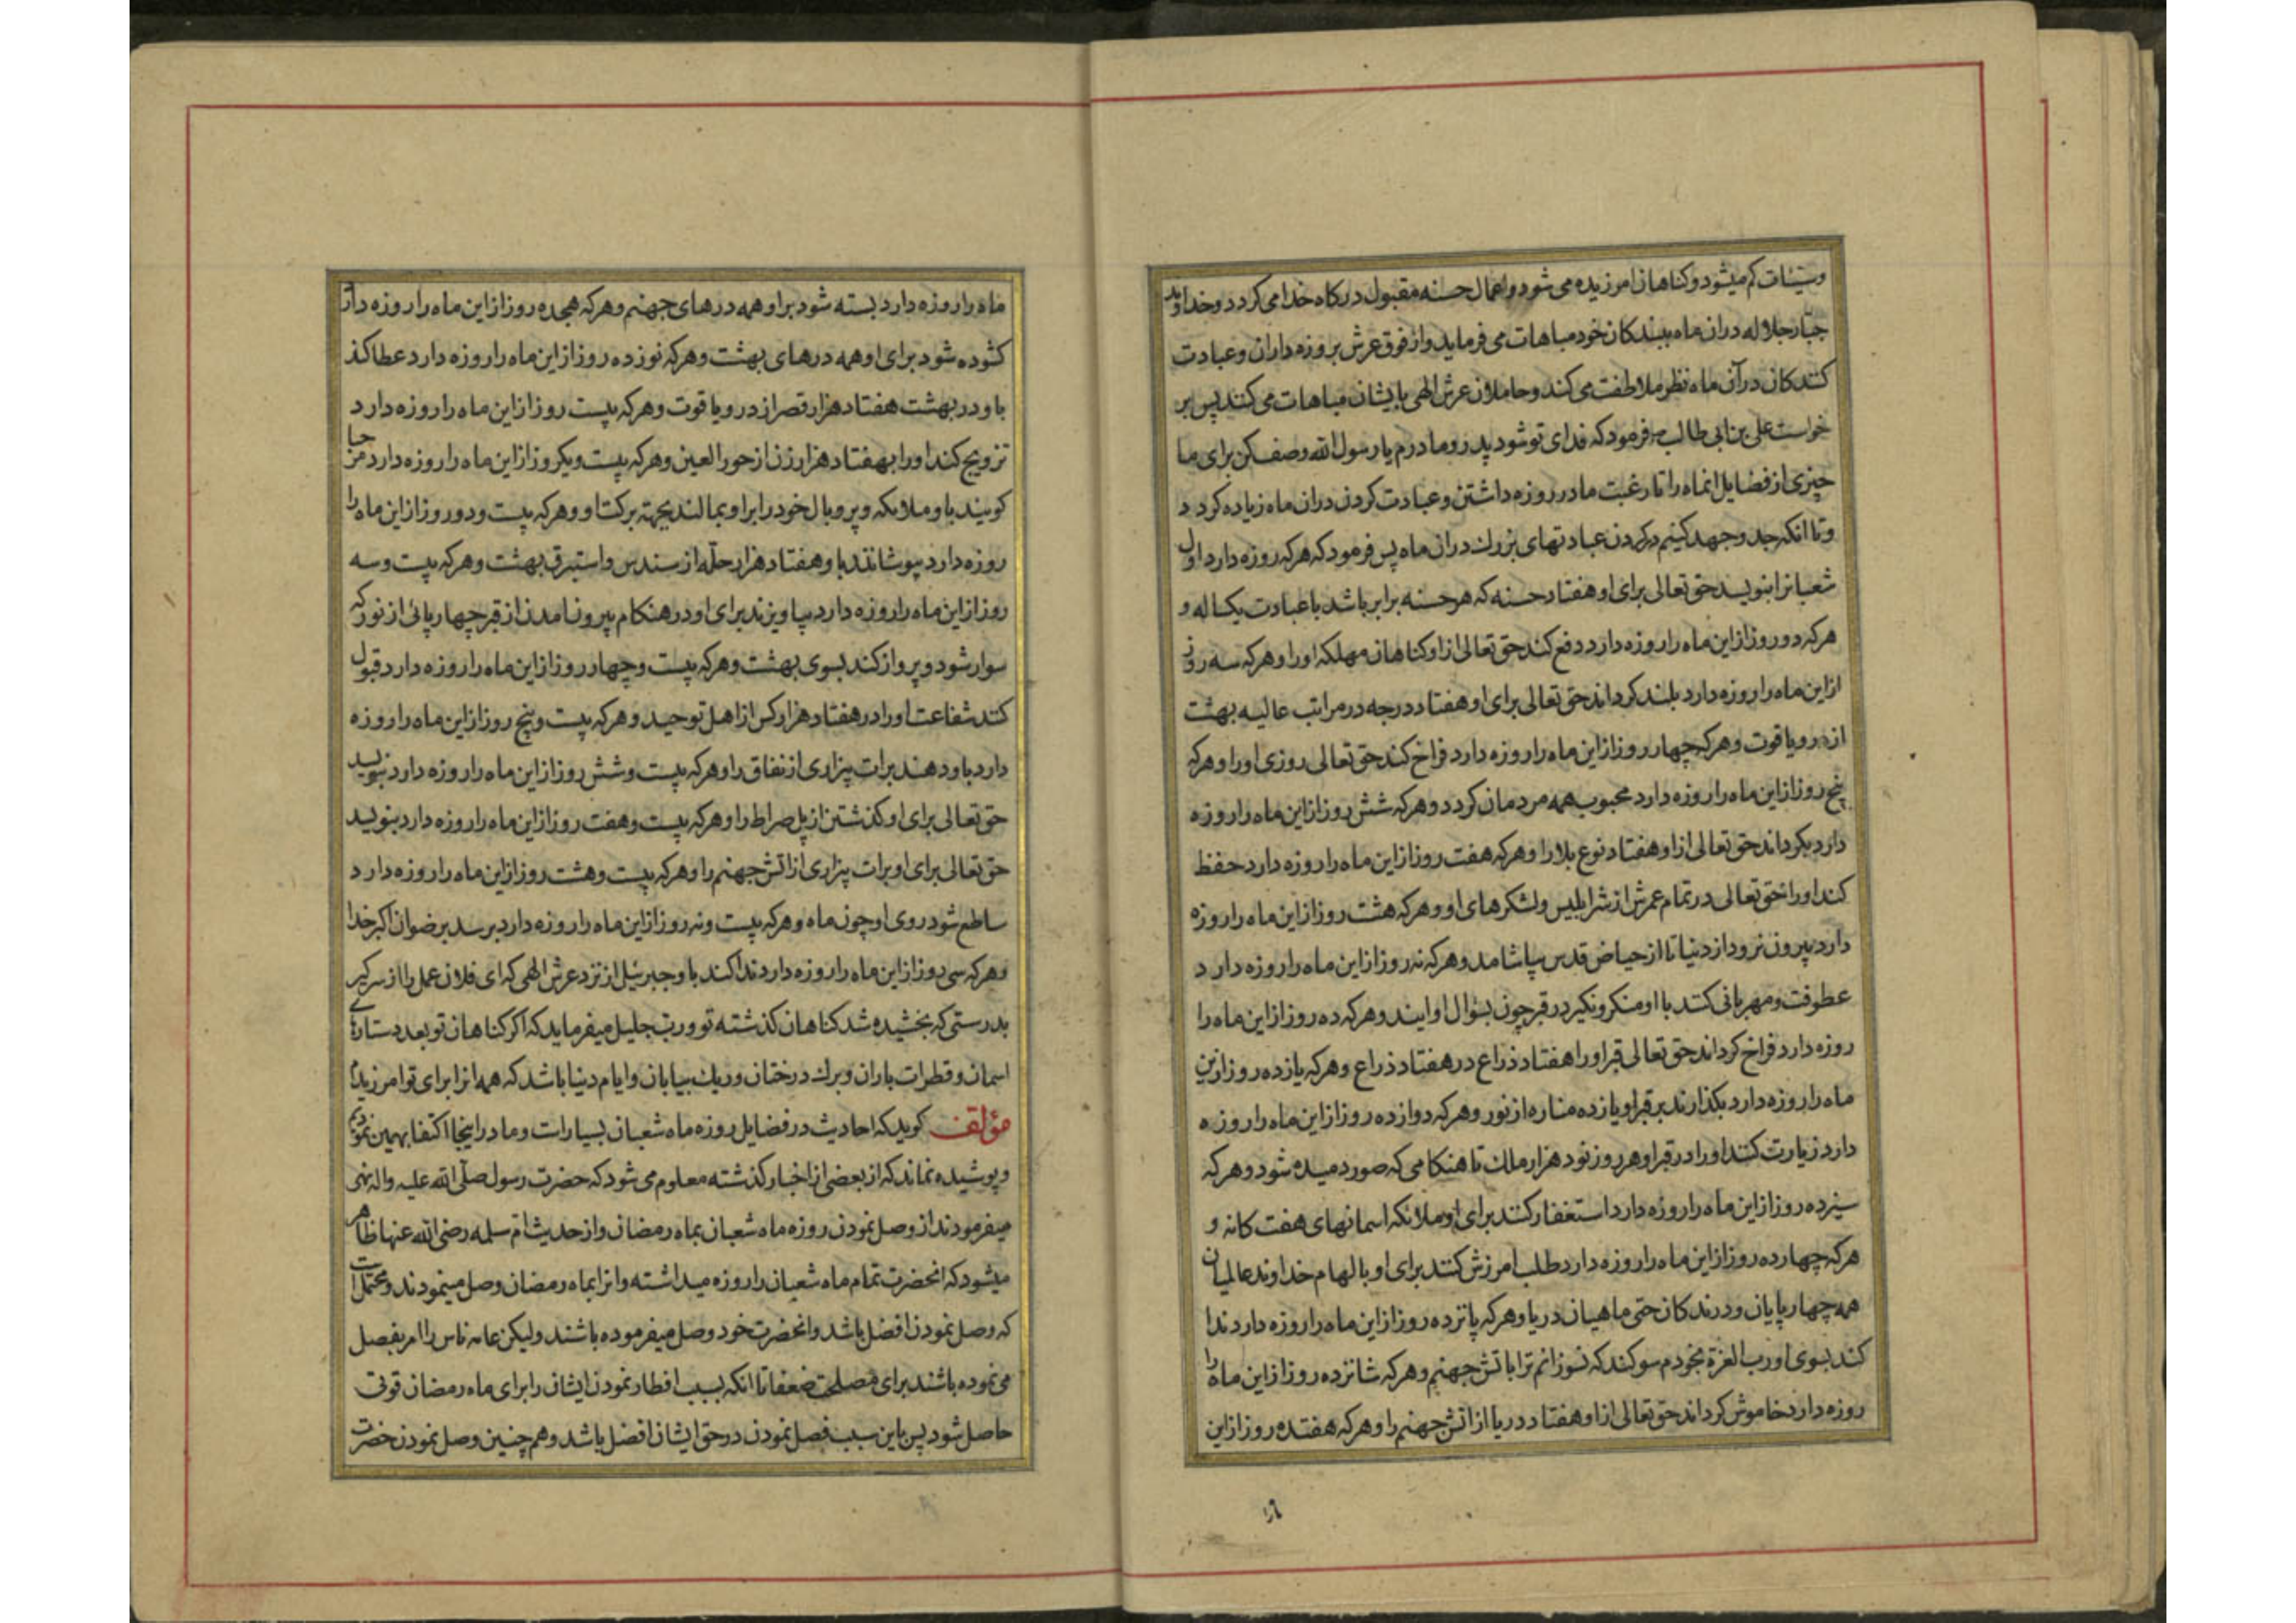 وسیئات کم میشود و کناهان امرزیده می شود و اعمال حسنه مقبول درکاه خدا می کردد و خداوند
جبار جلاله دران ماه ببندکان خود مباهات می فرماید و از فوق عرش بروزه داران و عبادت
کنندکان در آن ماه نظر ملاطفت می کند و حاملان عرش الهی بایشان مباهات می کنند پس بر
خواست علی بن ابی طالب و فرمود که فدای تو شود پدر و مادرم یا رسول الله وصف کن برای ما
چیزی از فضایل انماه را تا رغبت ما در روزه داشتن و عبادت کردن دران ماه زیاده کردد
و تا انکه جد و جهد کنیم در کردن عبادتهای بزرك دران ماه پس فرمود که هر که روزه دارد اول
شعبانرا بنویسد حق تعالی برای او هفتاد حسنه که هر حسنه برابر باشد با عبادت یکساله و
هر که دو روز از این ماه را روزه دارد دفع کند حق تعالی از او کناهان مهلکه او را و هر که سه روز
از این ماه را روزه دارد بلند کرداند حق تعالی برای او هفتاد درجه در مراتب عالیه بهشت
از در و یاقوت و هر که چهار روز از این ماه را روزه دارد فراخ کند حق تعالی روزی او را و هر که
پنج روز از این ماه را روزه دارد محبوب همه مردمان کردد و هر که شش روز از این ماه را روزه
دارد بکرداند حق تعالی از او هفتاد نوع بلا را و هر که هفت روز از این ماه را روزه دارد حفظ
کند او را حق تعالی در تمام عمرش از شر ابلیس و لشکرهای او و هر که هشت روز از این ماه را روزه
دارد بیرون نرود از دنیا تا از حیاض قدس بیاشامد و هر که نه روز از این ماه را روزه دارد
عطوفت و مهربانی کنند با او منکر و نکیر در قبر چون بسؤال او ایند و هر که ده روز از این ماه را
روزه دارد فراخ کرداند حق تعالی قبر او را هفتاد ذراع در هفتاد ذراع و هر که یازده روز ازین
ماه را روزه دارد بکذارند بر قبر او یازده مناره از نور و هر که دوازده روز از این ماه را روزه
دارد زیارت کنند او را در قبر او هر روز نود هزار ملك تا هنکامی که صور دمیده شود و هر که
سیزده روز از این ماه را روزه دارد استغفار کنند برای او ملائکه اسمانهای هفت کانه و
هر که چهارده روز از این ماه را روزه دارد طلب امرزش کنند برای او بالهام خداوند عالمیان
همه چهارپایان و درندکان حتی ماهیان دریا و هر که پانزده روز از این ماه را روزه دارد ندا
کند بسوی او رب العزة بخودم سوکند که نسوزانم ترا باتش جهنم و هر که شانزده روز از این ماه را
روزه دارد خاموش کرداند حق تعالی از او هفتاد دریا از اتش جهنم را و هر که هفتده روز از این
ماه را روزه دارد بسته شود بر او همه درهای جهنم و هر که هجده روز از این ماه را روزه دارد
کشوده شود برای او همه درهای بهشت و هر که نوزده روز از این ماه را روزه دارد عطا کند
باو در بهشت هفتاد هزار قصر از در و یاقوت و هر که بیست روز از این ماه را روزه دارد
تزویج کند او را بهفتاد هزار زن از حور العین و هر که بیست و یکروز از این ماه را روزه دارد مرحبا
کویند باو ملائکه و پر و بال خود را بر او بمالند بجهة برکت او و هر که بیست و دو روز از این ماه را
روزه دارد بپوشانند باو هفتاد هزار حلّه از سندس و استبرق بهشت و هر که بیست و سه
روز از این ماه را روزه دارد بیاویزند برای او در هنکام بیرون امدن از قبر چهارپائی از نور که
سوار شود و پرواز کند بسوی بهشت و هر که بیست و چهار روز از این ماه را روزه دارد قبول
کنند شفاعت او را در هفتاد هزار کس از اهل توحید و هر که بیست و پنج روز از این ماه را روزه
دارد باو دهند برات بیزاری از نفاق را و هر که بیست و شش روز از این ماه را روزه دارد بنویسد
حق تعالی برای او کذشتن از پل صراط را و هر که بیست و هفت روز از این ماه را روزه دارد بنویسد
حق تعالی برای او برات بیزاری از اتش جهنم را و هر که بیست و هشت روز از این ماه را روزه دارد
ساطع شود روی او چون ماه و هر که بیست و نه روز از این ماه را روزه دارد برسد برضوان اکبر خدا
و هر که سی روز از این ماه را روزه دارد ندا کند باو جبرئیل از نزد عرش الهی که ای فلان عمل را از سر کیر
بدرستی که بخشیده شد کناهان کذشته تو و رب جلیل میفرماید که اکر کناهان تو بعدد ستارهای
اسمان و قطرات باران و برك درختان و ریك بیابان و ایام دنیا باشد که همه انرا برای تو امرزیدم
مؤلف کوید که احادیث در فضایل روزه ماه شعبان بسیار است و ما در اینجا اکتفا بهمین نمودیم
و پوشیده نماند که از بعضی از اخبار کذشته معلوم می شود که حضرت رسول صلّی الله علیه واله نهی
میفرمودند از وصل نمودن روزه ماه شعبان بماه رمضان و از حدیث امّ سلمه رضی الله عنها ظاهر
میشود که انحضرت تمام ماه شعبان را روزه میداشته و انرا بماه رمضان وصل مینمودند و محتمل است
که وصل نمودن افضل باشد و انحضرت خود وصل میفرموده باشند ولیکن عامه ناس را امر بفصل
می نموده باشند برای مصلحت ضعفا تا انکه بسبب افطار نمودن ایشان را برای ماه رمضان قوتی
حاصل شود پس باین سبب فصل نمودن در حق ایشان افضل باشد و هم چنین وصل نمودن حضرت